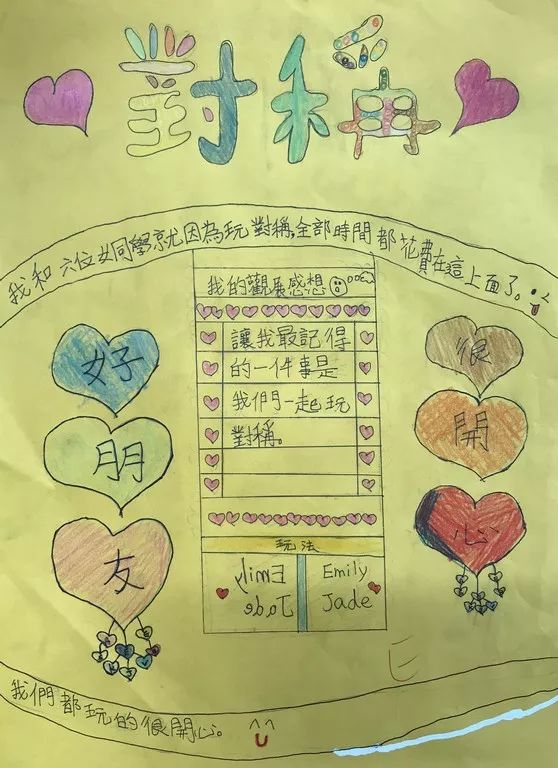 對稱
我和六位女同學就因為玩對稱,全部時間都花費在這上面了。
我的觀展感想
讓我最記得
的一件事是
我們一起玩
對稱。
好
朋
友
很
開
心
玩法
Emily Emily
Jade Jade
我們都玩的很開心。